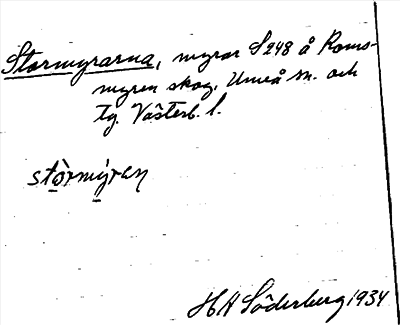 Stormyrarna, myrar S248 å Roms-
myren skog, Umeå sn. och
tg. Västerb. l.
stòrmýren
H A Söderberg 1934